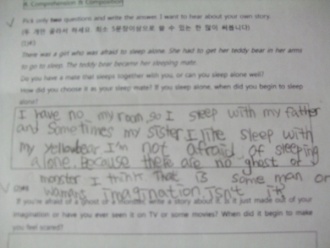 B. Comprehension & Composition
Pick only two questions and write the answer I want to hear about your own story.
(Q#)
There was a girl who was afraid to sleep alone. She had to get her teddy bear in her arms
to go to sleep. The teddy bear became her sleeping mate.
Do you have a mate that sleeps together with you, or can you sleep alone well?
How did you choose it as your sleep mate? If you sleep alone, when did you begin to sleep
alone?
I have no my room, so I sleep with my father
and sometimes my sister I like sleep with
my yellowbear I'm not afraid of sleeping
alone. Because there are no ghost of
monster I think That is some man or
imagination. isn't it
If you're afraid of a ghost or a monster, write a story about it. Is it just made out of your
imagination or have you ever seen it on TV or some movies? When did it begin to make
you feel scared?